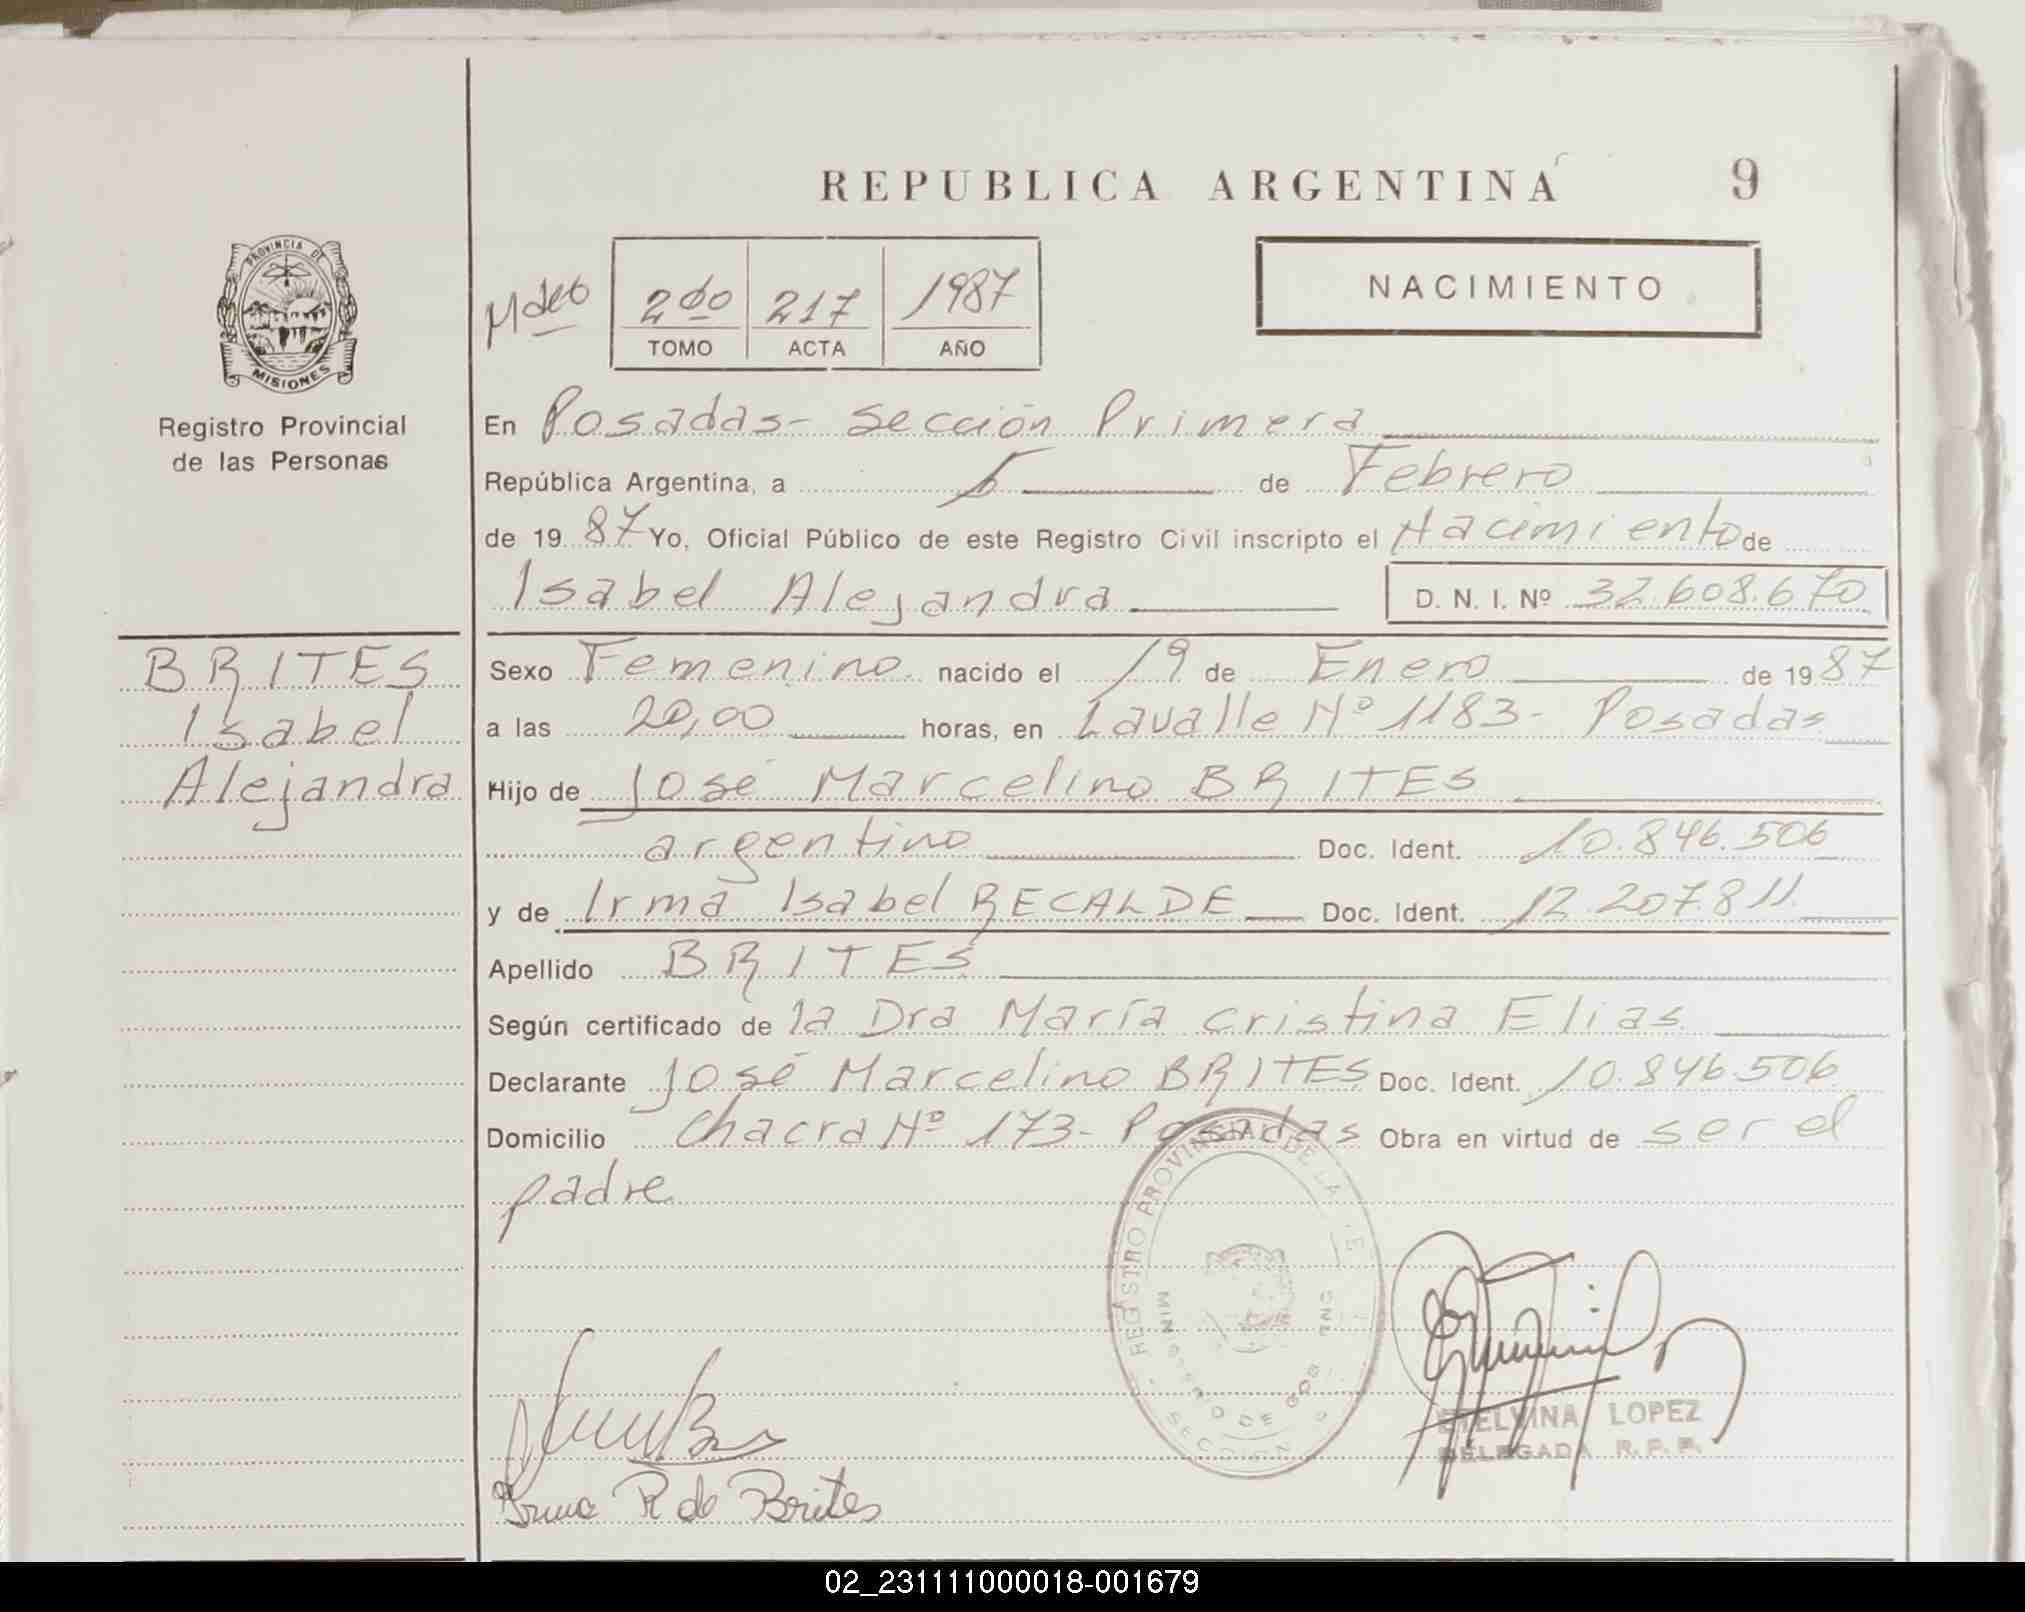 REPUBLICA ARGENTINA 9
PROVINCIA DE
MISIONES
Registro Provincial
de las Personas
2do 217 1987
TOMO ACTA AÑO
NACIMIENTO
En Posadas- Sección Primera
República Argentina, a de Febrero
de 1987 Yo, Oficial Público de este Registro Civil inscripto el Nacimiento de
Isabel Alejandra D. N. I. Nº 32.608.670
BRITES
Isabel
Alejandra
Sexo Femenino nacido el 19 de Enero de 1987
a las 20,00 horas, en Lavalle Nº 1183- Posadas
Hijo de José Marcelino BRITES
argentino Doc. Ident. 10.846.506
y de Irma Isabel RECALDE Doc. Ident. 12.207.811
Apellido BRITES
Según certificado de la Dra María Cristina Elias
Declarante José Marcelino BRITES Doc. Ident. 10.846.506
Domicilio Chacra Nº 173- Posadas Obra en virtud de ser el
padre
REGISTRO PROVINCIAL DE LA
MINISTERIO DE GOB
SECCION
ETELVINA LOPEZ
DELEGADA R. P. P.
Irma R de Brites
02_231111000018-001679